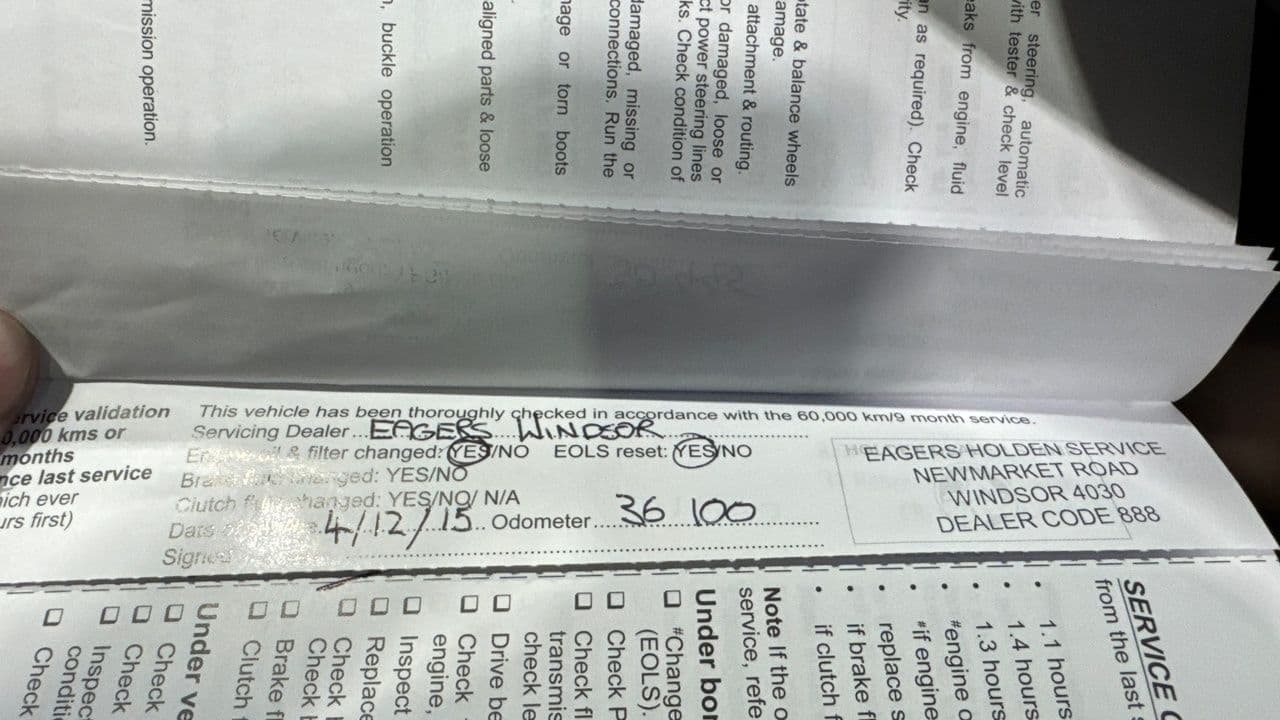 er steering, automatic
with tester & check level
eaks from engine, fluid
an as required). Check
ity.
otate & balance wheels
amage.
attachment & routing.
or damaged, loose or
ct power steering lines
ks. Check condition of
damaged, missing or
connections. Run the
mage or torn boots
aligned parts & loose
n, buckle operation
mission operation.
ervice validation
0,000 kms or
months
nce last service
ich ever
urs first)
This vehicle has been thoroughly checked in accordance with the 60,000 km/9 month service.
Servicing Dealer...EAGERS WINDSOR
& filter changed: YES/NO EOLS reset: YES/NO
changed: YES/NO
Clutch changed: YES/NO/ N/A
Date 4/12/15 Odometer 36 100
Signed
EAGERS HOLDEN SERVICE
NEWMARKET ROAD
WINDSOR 4030
DEALER CODE 888
SERVICE
from the last
• 1.1 hours
• 1.4 hours
• 1.3 hours
• #engine
• #if engine
• replace
• if brake
• if clutch
Note If the
service, refe
Under bo
☐ #Change
(EOLS).
☐ Check P
☐ Check fl
transmis
check le
☐ Drive be
☐ Check
engine,
☐ Inspect
☐ Replace
☐ Check
Check
☐ Brake fl
☐ Clutch
Under ve
☐ Check
☐ Check
☐ Inspect
conditi
☐ Check